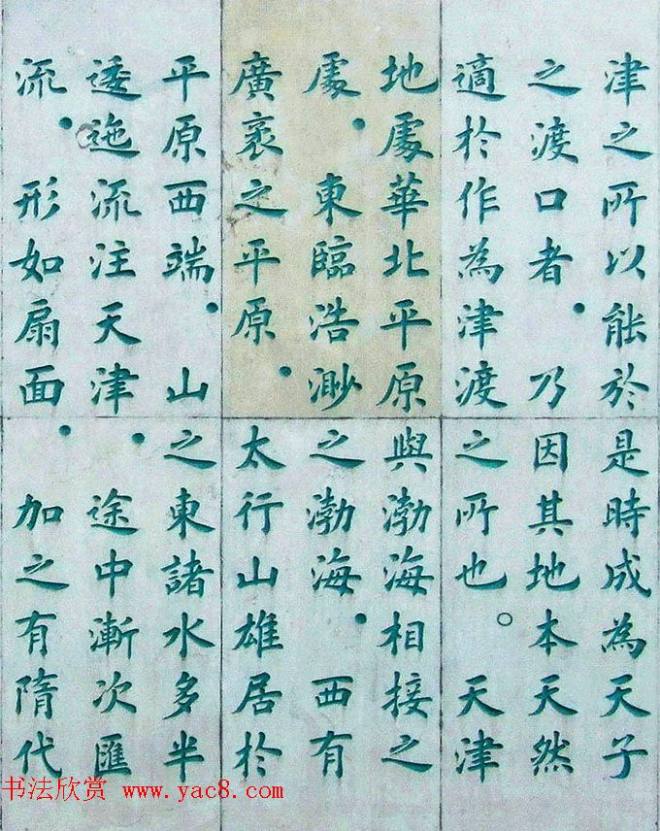 津之所以能於是時成為天子
之渡口者．乃因其地本天然
適於作為津渡之所也。天津
地處華北平原與渤海相接之
處．東臨浩渺之渤海．西有
廣袤之平原．太行山雄居於
平原西端．山之東諸水多半
逶迤流注天津．途中漸次匯
流．形如扇面．加之有隋代
书法欣赏 www.yac8.com